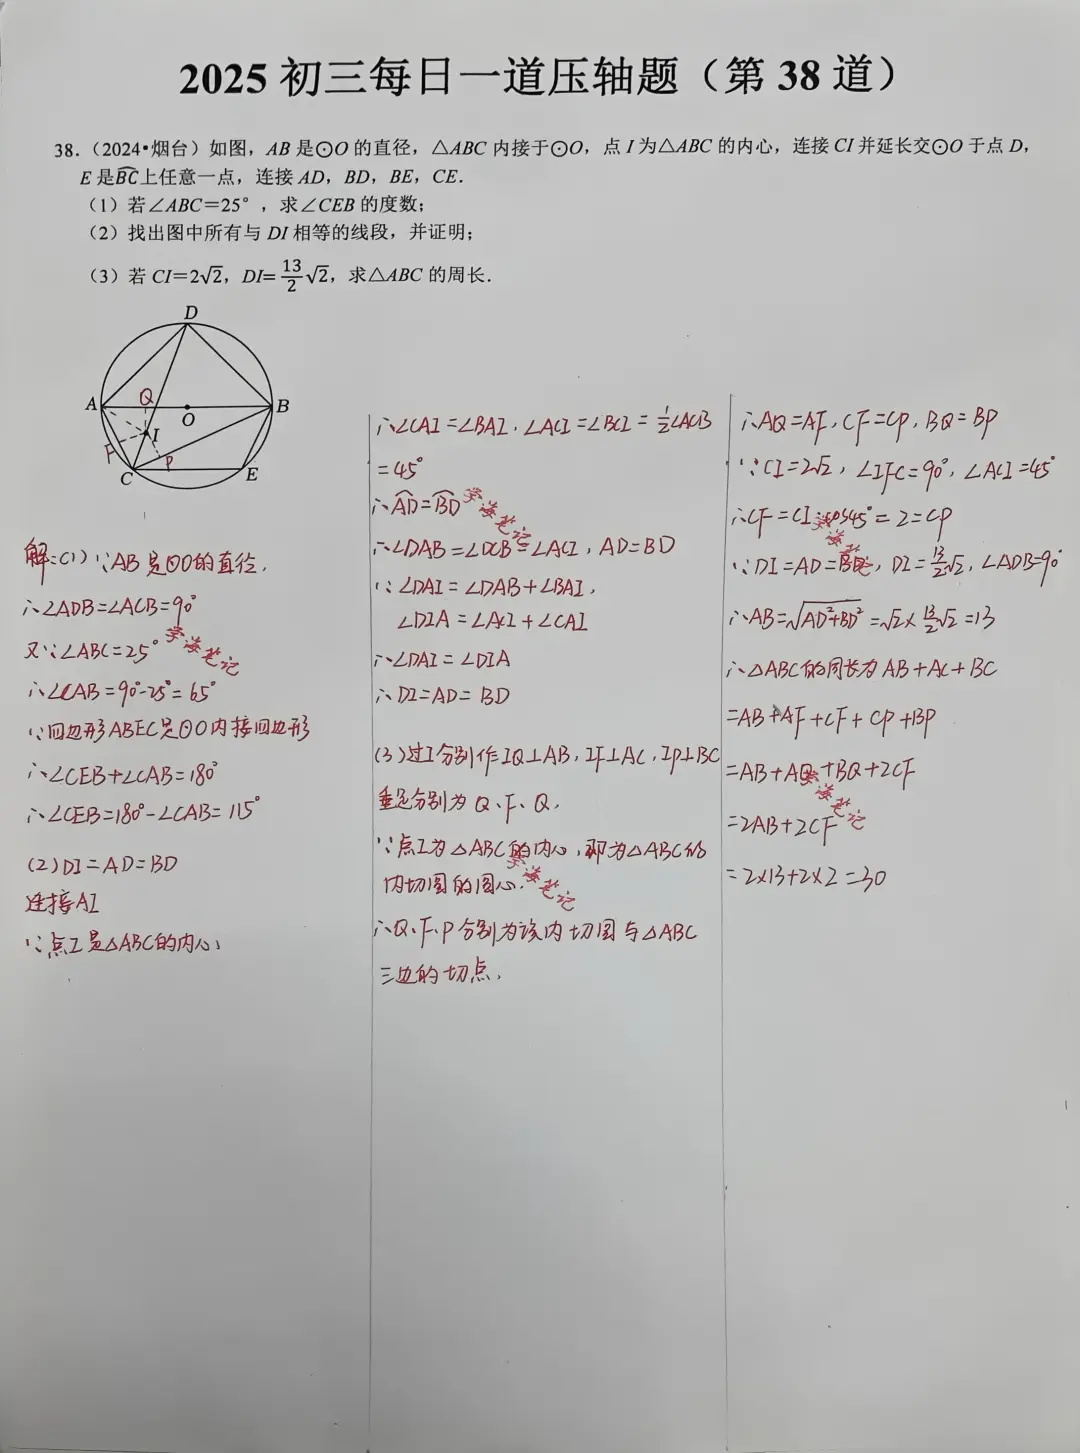 2025 初三每日一道压轴题（第 38 道）
38.（2024•烟台）如图，AB 是⊙O 的直径，△ABC 内接于⊙O，点 I 为△ABC 的内心，连接 CI 并延长交⊙O 于点 D，
E 是B͡C上任意一点，连接 AD，BD，BE，CE．
（1）若∠ABC＝25°，求∠CEB 的度数；
（2）找出图中所有与 DI 相等的线段，并证明；
（3）若 CI＝2√2，DI= 13/2 √2，求△ABC 的周长．
D
A Q O B
F I P
C E
解:(1)∵AB是⊙O的直径，
∴∠ADB=∠ACB=90°
又∵∠ABC=25°
∴∠CAB=90°-25°=65°
∵四边形ABEC是⊙O内接四边形
∴∠CEB+∠CAB=180°
∴∠CEB=180°-∠CAB=115°
(2)DI=AD=BD
连接AI
∵点I是△ABC的内心，
∴∠CAI=∠BAI，∠ACI=∠BCI=1/2∠ACB
=45°
∴A͡D=B͡D
∴∠DAB=∠DCB=∠ACI，AD=BD
∵∠DAI=∠DAB+∠BAI，
∠DIA=∠ACI+∠CAI
∴∠DAI=∠DIA
∴DI=AD=BD
(3)过I分别作IQ⊥AB，IF⊥AC，IP⊥BC
垂足分别为Q、F、Q．
∵点I为△ABC的内心，即为△ABC的
内切圆的圆心．
∴Q、F、P分别为该内切圆与△ABC
三边的切点，
∴AQ=AF，CF=CP，BQ=BP
∵CI=2√2，∠IFC=90°，∠ACI=45°
∴CF=CI·cos45°=2=CP
∵DI=AD=BD，DI=13/2√2，∠ADB=90°
∴AB=√AD²+BD²=√2×13/2√2=13
∴△ABC的周长为AB+AC+BC
=AB+AF+CF+CP+BP
=AB+AQ+BQ+2CF
=2AB+2CF
=2×13+2×2=30
学海笔记
学海笔记
学海笔记
学海笔记
学海笔记